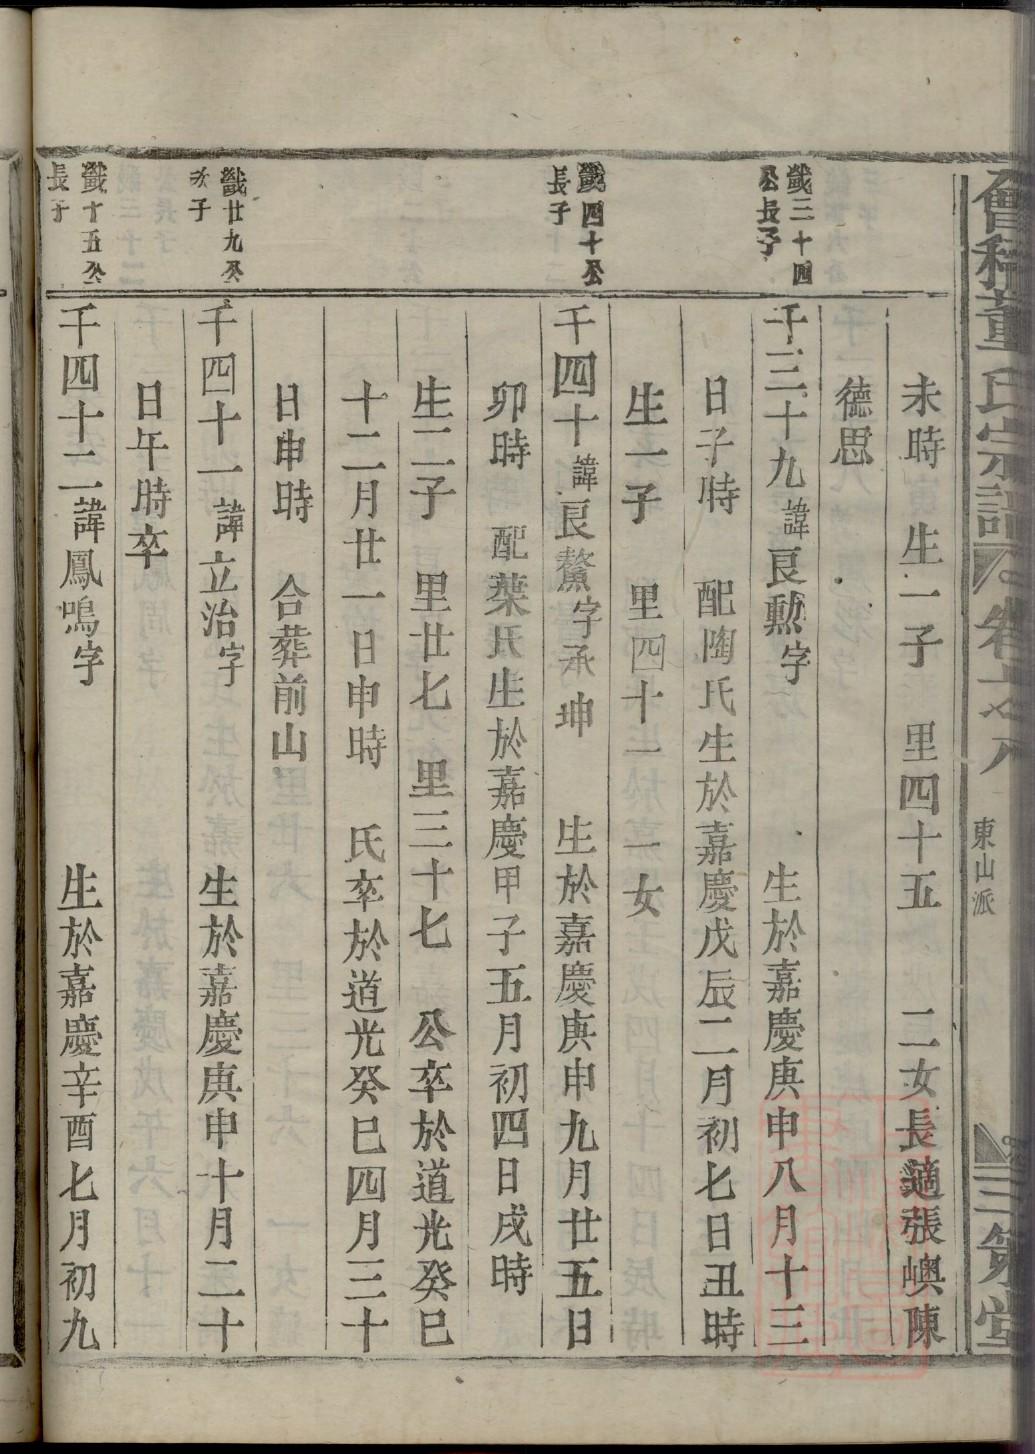 會稽董氏宗譜
東山派
三策堂
未時 生一子 里四十五 二女長適張嶼陳
德思
戩三十四
公長子
千三十九諱良勲字 生於嘉慶庚申八月十三
日子時 配陶氏生於嘉慶戊辰二月初七日丑時
生一子 里四十一 一女
戩四十公
長子
千四十諱良鰲字承坤 生於嘉慶庚申九月廿五日
卯時 配葉氏生於嘉慶甲子五月初四日戌時
生二子 里廿七 里三十七 公卒於道光癸巳
十二月廿一日申時 氏卒於道光癸巳四月三十
日申時 合葬前山
戩廿九公
次子
千四十一諱立治字 生於嘉慶庚申十月二十
日午時卒
戩十五公
長子
千四十二諱鳳鳴字 生於嘉慶辛酉七月初九